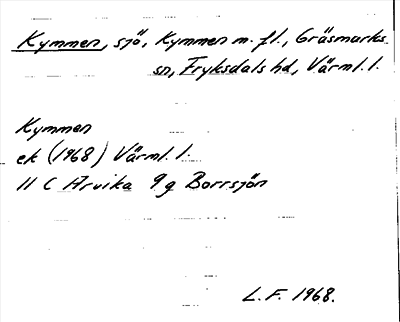 Kymmen, sjö, Kymmen m. fl., Gräsmarks
sn, Fryksdals hd, Värml. l.
Kymmen
ek (1968) Värml. l.
11 C Arvika 9 g Borrsjön
L. F. 1968.